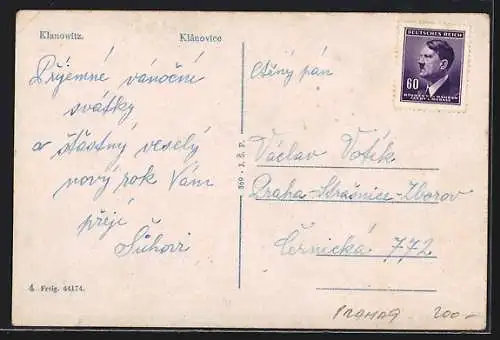 Klanowitz.
Klánovice
Příjemné vánoční
svátky
a šťastný veselý
nový rok Vám
přejí
Sühovi
ctěný pán
Václav Voťek
Praha-Strašnice-Zborov
Černická 772
DEUTSCHES REICH
60
BÖHMEN u. MÄHREN
ČECHY a MORAVA
369 - J. Č. P.
4 Fertig. 44174.
200-